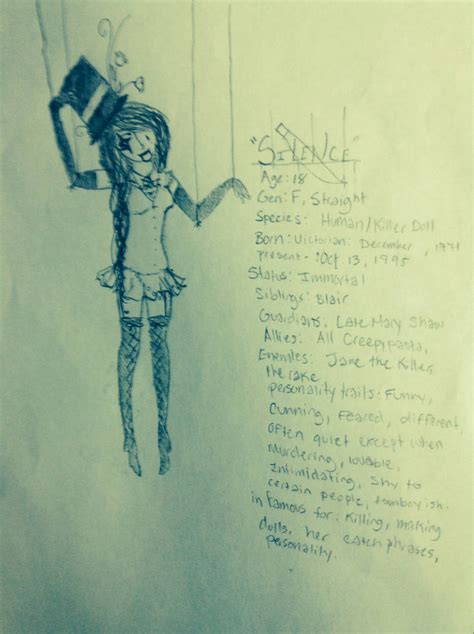 "SILENCE"
Age: 18
Gen: F, Straight
Species: Human/Killer Doll
Born: Victorian: December,
present - Oct 13, 1995
Status: Immortal
Siblings: Blair
Guardians: Late Mary Shaw
Allies: All Creepypasta,
Enemies: Jane the Killer,
the rake
personality traits: Funny,
Cunning, Feared, different,
often quiet except when
Murdering, lovable,
Intimidating, Shy to
certain people, tomboyish.
infamous for: Killing, making
dolls, her catch phrases,
personality.